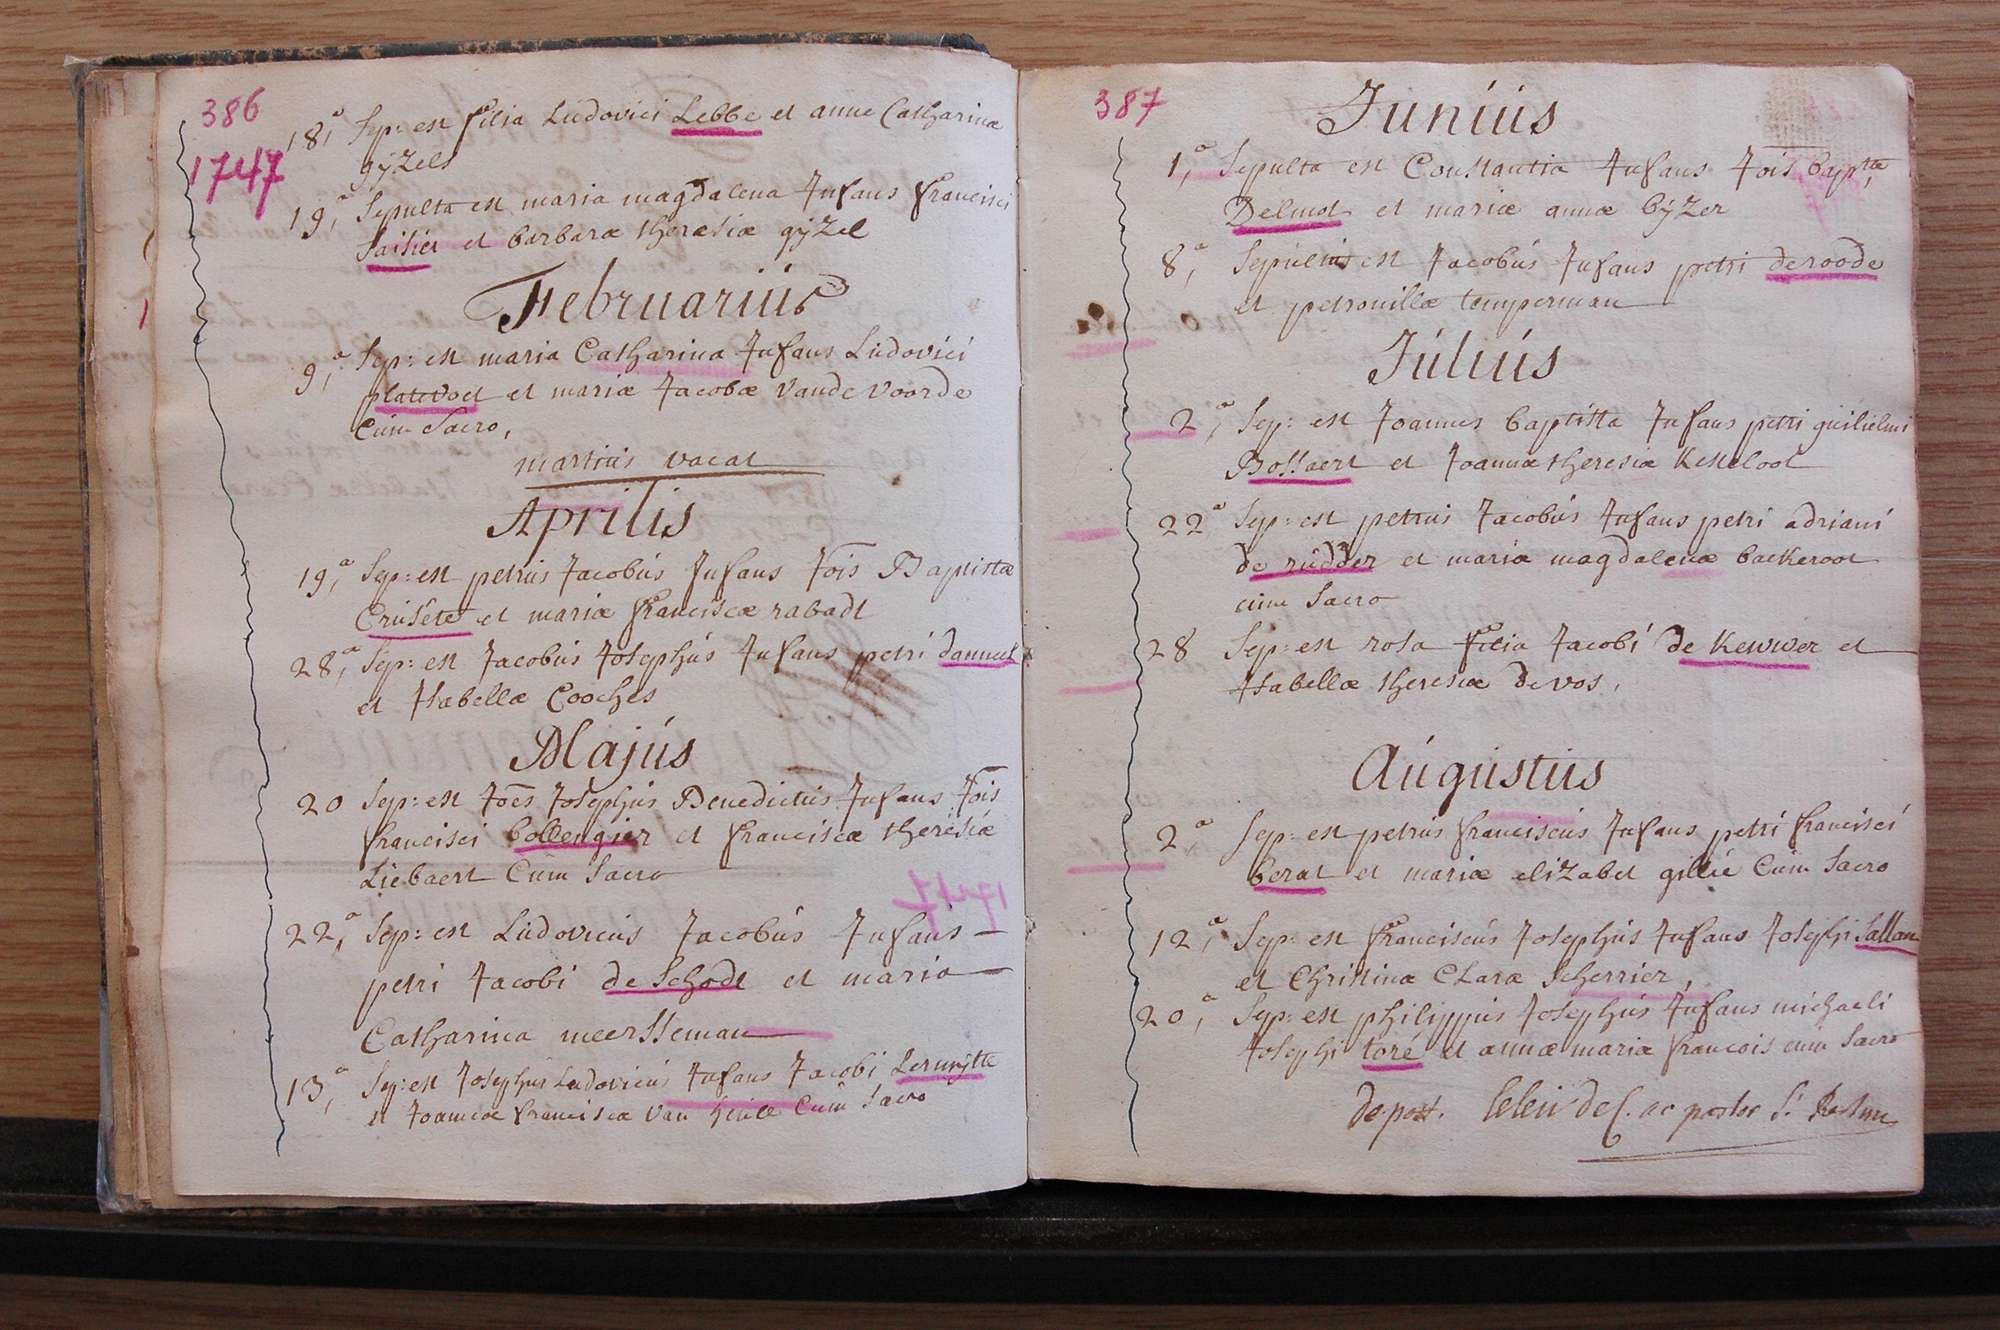 386
1747
18,a Sep: est filia Ludovici Lebbe et anne Catharinæ
gÿzels
19,a Sepulta est maria magdalena Infans francisci
et barbaræ theræsiæ gÿzel
Februariús
9,a Sep: est maria Catharina Infans Ludovici
platevoet et mariæ Jacobæ Vande Voorde
Cum Sacro,
martius vacat
Aprilis
19,a Sep: est petrús Jacobús Infans Jois Baptistæ
Crusête et mariæ franciscæ rabadt
28,a Sep: est Jacobús Josephús Infans petri
et Isabellæ Cooches
Majús
20 Sep: est Joēs Josephús Benedictús Infans Jois
francisci bollengier et franciscæ theresiæ
Liebaert Cum Sacro
22,a Sep: est Ludovicús Jacobús Infans
petri Jacobi de Schodt et maria
Catharina meersseman
13,a Sep: est Josephus Ludovicús Infans Jacobi
et Joannæ franciscæ Van Cum Sacro
387
Juniús
1,a Sepulta est Constantia Infans Jois bapttæ
Delmot et mariæ annæ bÿzer
8,a est Jacobús Infans petri deroode
et petronillæ temperman
Júliús
2,a Sep: est Joannes baptista Infans petri guilielmi
Bossaert et Joannæ theresiæ Kesteloot
22a Sep: est petrús Jacobús Infans petri adriani
de rúdder et maria magdalenæ backeroot
cum Sacro
28 Sep: est rosa filia Jacobi de Kewwer et
Isabellæ theresiæ devos,
Aúgústús
2,a Sep: est petrús franciscús Infans petri francisci
berat et mariæ elizabet gillié Cum Sacro
12,a Sep: est franciscús Josephús Infans Josephi Sallan
et Christinæ Claræ Scherrier,
20,a Sep: est philippús Josephús Infans michaeli
Josephi toré et annæ mariæ francois cum Sacro
ac pastor